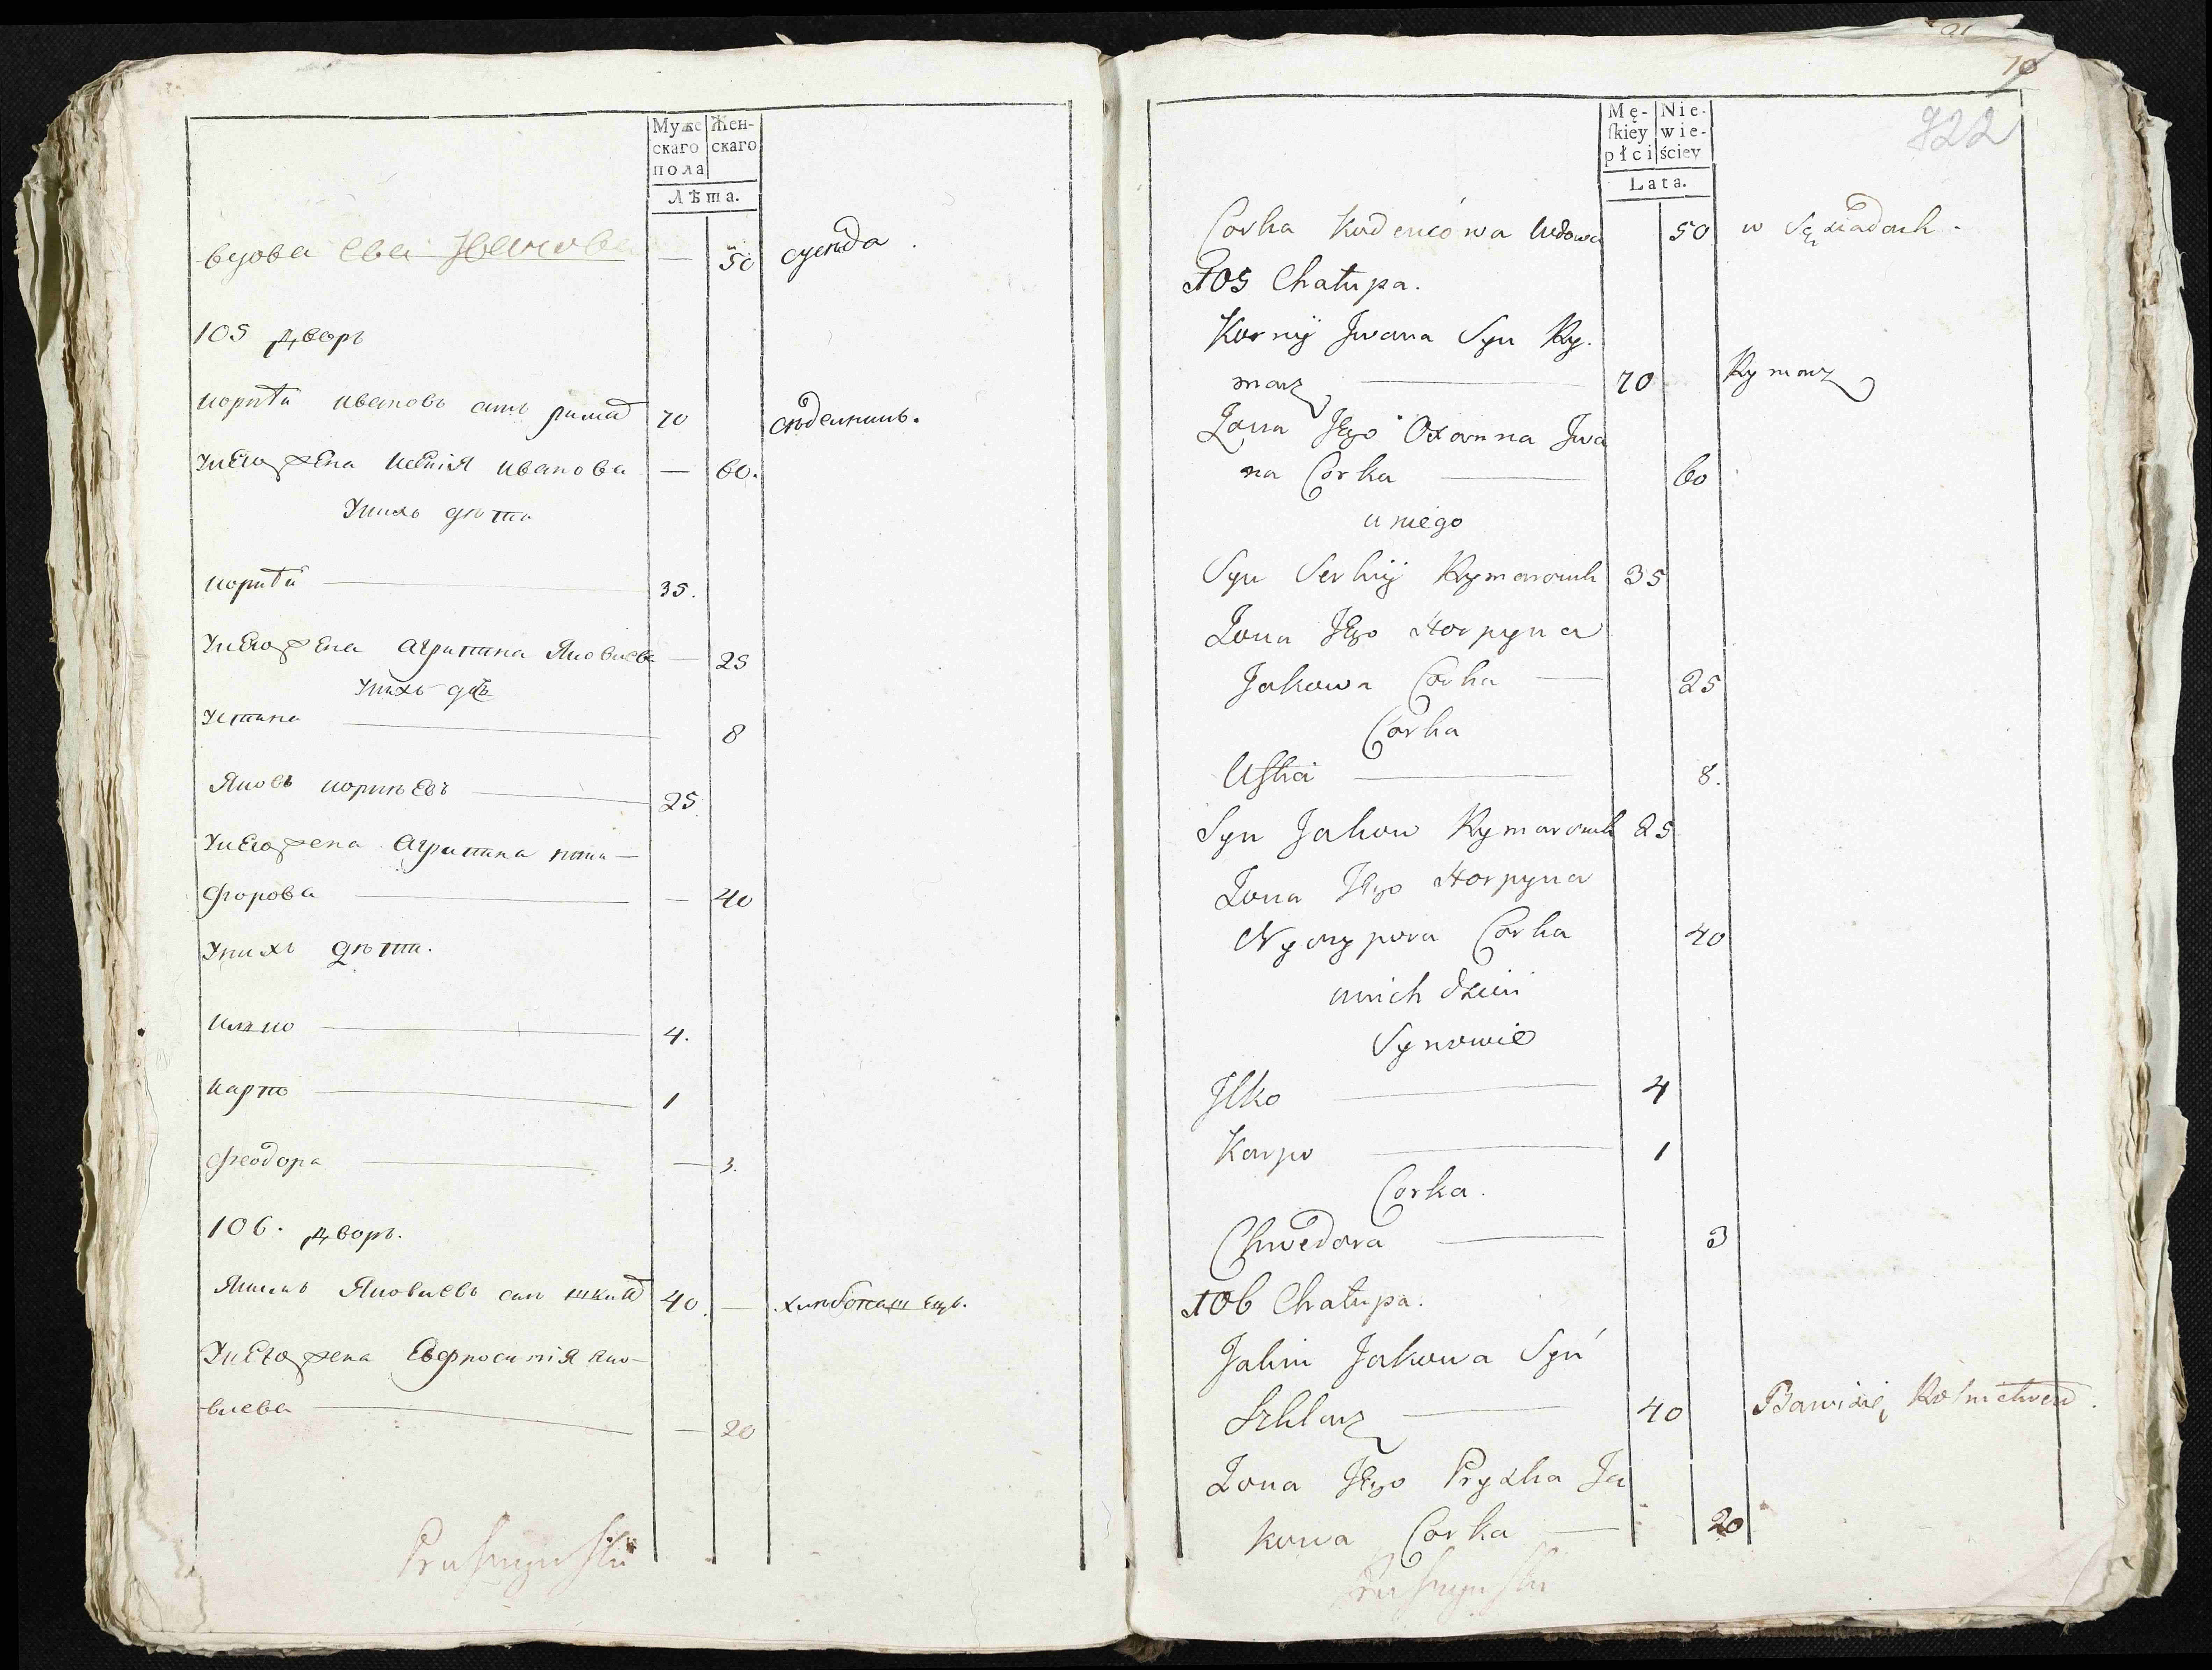 Муже
скаго
пола
Жен-
скаго
Лѣта.
вдова Ева Иванова — 50 суседа.
105 дворъ
корнѣй ивановъ синъ римар 70 седелникъ.
у него жена ксенія иванова — 60.
у нихъ дѣти
корнѣй 35.
у него жена агрипина яковлева — 25
у нихъ дѣ
устина 8
яковъ корнѣевъ 25.
у него жена агрипина ники-
форова — 40
у нихъ дѣти.
илко 4.
карпо 1
феодора — 3.
106. дворъ.
якимъ яковлевъ синъ шкляр 40. — хлебопашецъ.
у него жена евфросинія яко-
влева — 20
Mę-
ſkiey
płci
Nie-
wie-
ściey
Lata.
10
722
Corka Kudencowa wdowa 50 w Sąsiadach.
105 Chałupa.
Korniy Jwana Syn Ry-
marz 70 Rymarz
Zona Jego Oxanna Jwa
na Corka 60
u niego
Syn Serhiy Rymarowich 35
Zona Jego Horpyna
Jakowa Corka 25
Corka
Uſtia 8.
Syn Jakow Rymarowich 25
Zona Jego Horpyna
Nyczypora Corka 40
u nich dzieci
Synowie
Jlko 4
Karpo 1
Corka.
Chwedora 3
106 Chałupa.
Jakim Jakowa Syn
Szklarz 40 Bawi się Rolnictwem.
Zona Jego Pryzka Ja
kowa Corka 20